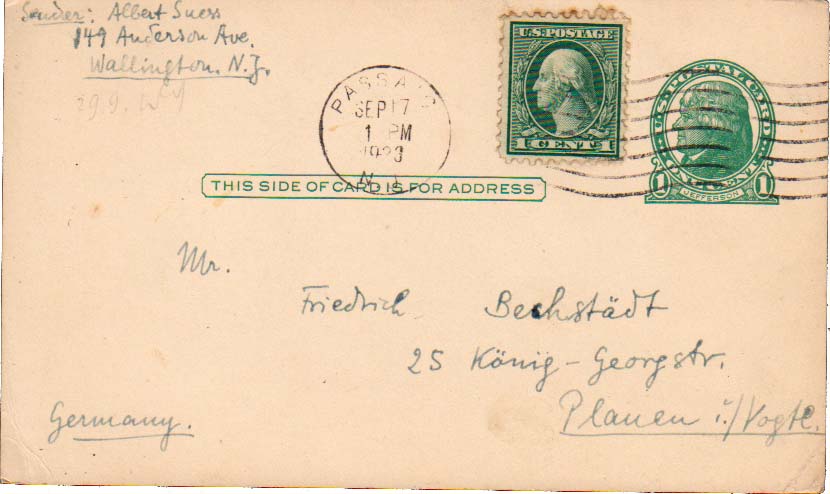 Sender: Albert Suess
149 Anderson Ave.
Wallington. N.J.
U.S. POSTAGE
1 CENT 1
PASSAIC
SEP 17
1 PM
1923
N.J.
U.S. POSTAL CARD
ONE CENT
1 JEFFERSON 1
THIS SIDE OF CARD IS FOR ADDRESS
Mr.
Friedrich Bechstädt
25 König-Georgstr.
Germany.
Plauen i./Vogtl.